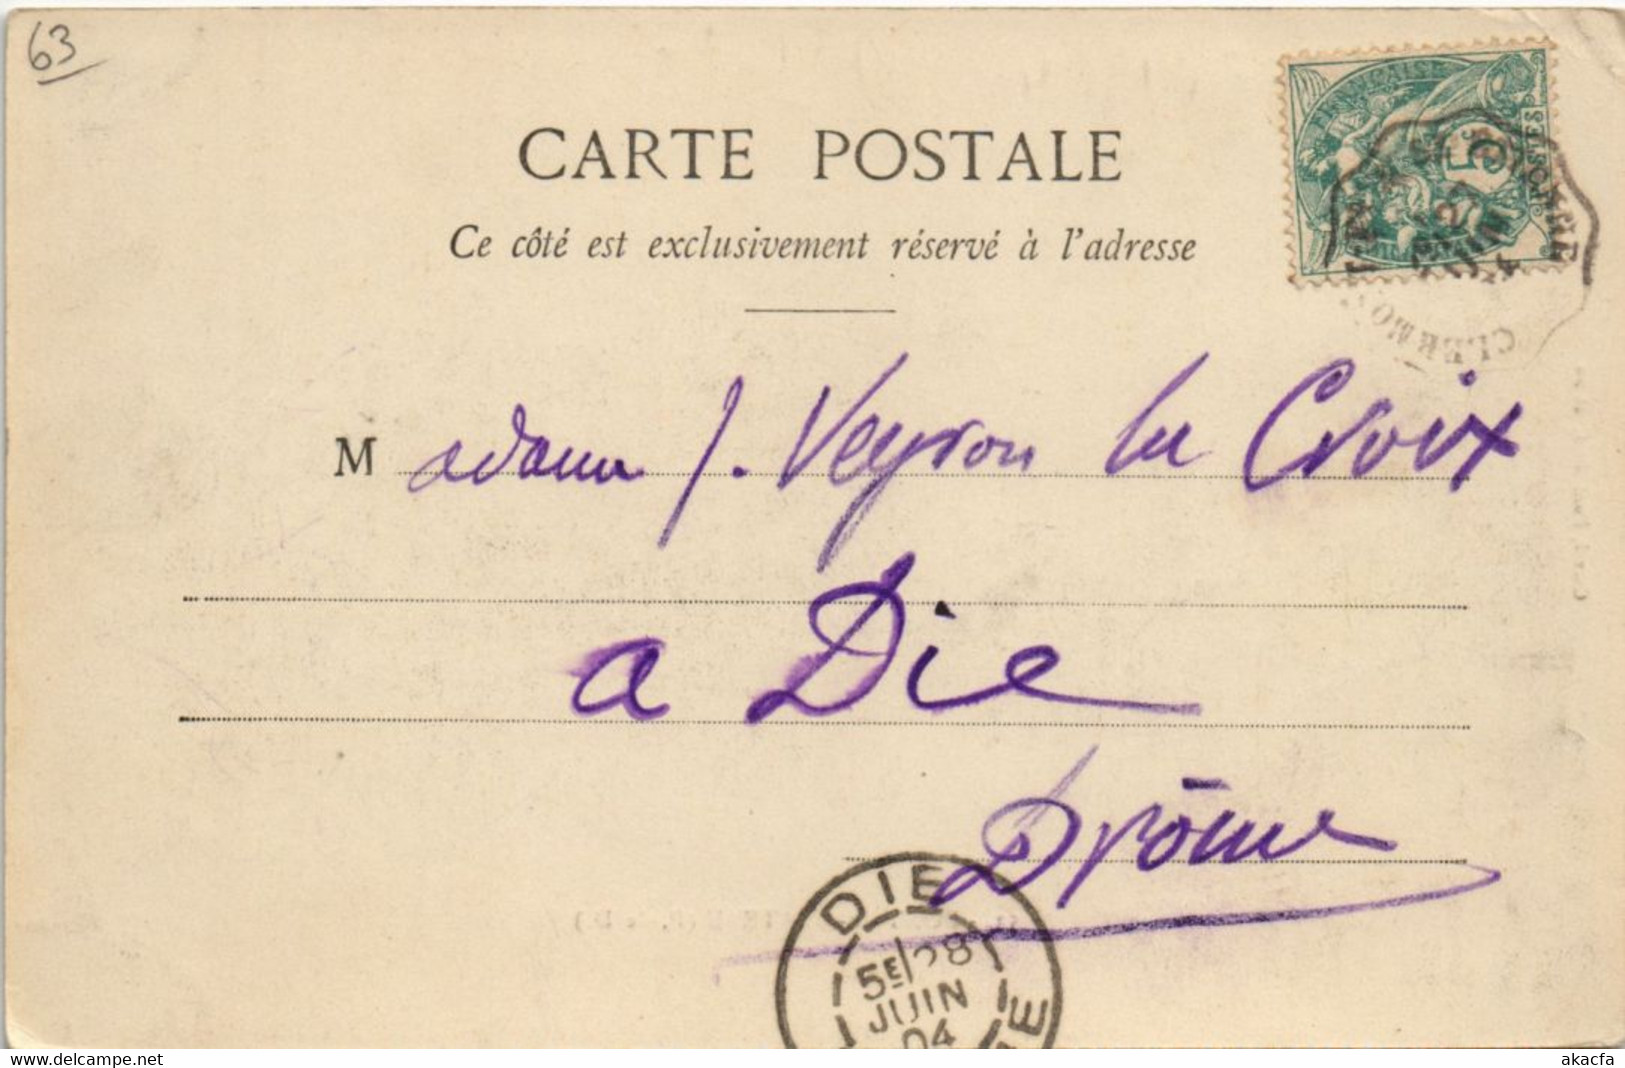 63
CARTE POSTALE
Ce côté est exclusivement réservé à l'adresse
5
POSTES
JUIN
CLERMON
Madame J. Veyron la Croix
a Die
Drôme
DIE
5E 28
JUIN
04
E
www.delcampe.net
akacfa